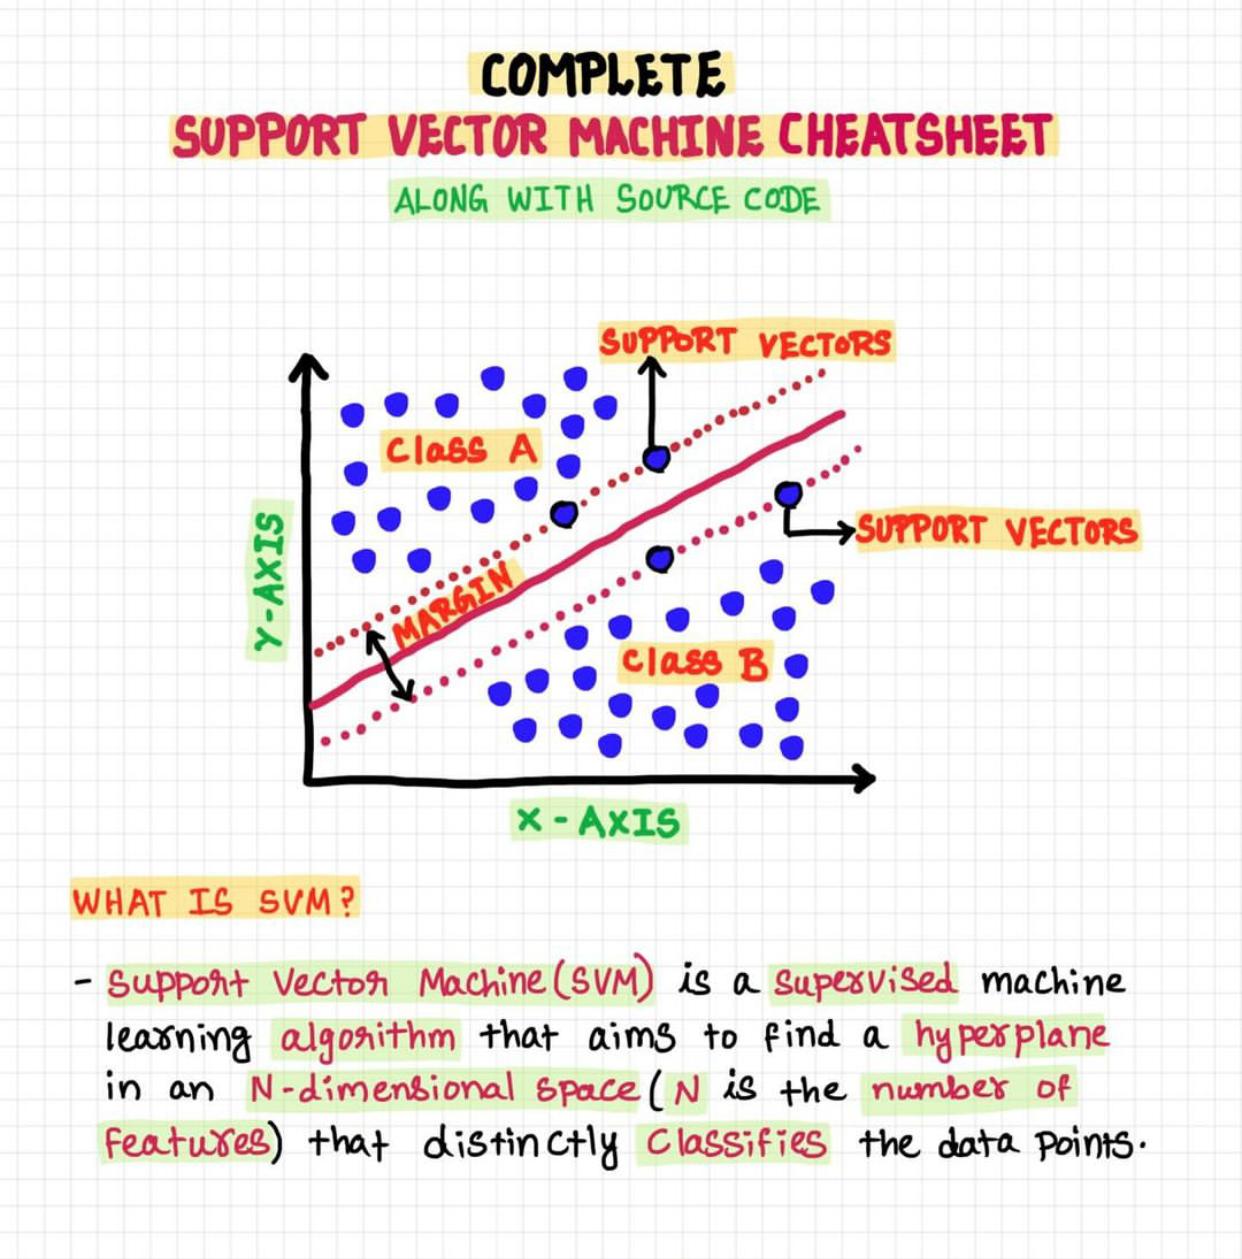 COMPLETE
SUPPORT VECTOR MACHINE CHEATSHEET
ALONG WITH SOURCE CODE
SUPPORT VECTORS
Class A
Y-AXIS
MARGIN
SUPPORT VECTORS
Class B
X-AXIS
WHAT IS SVM?
- Support Vector Machine(SVM) is a supervised machine
learning algorithm that aims to find a hyperplane
in an N-dimensional space(N is the number of
features) that distinctly classifies the data points.